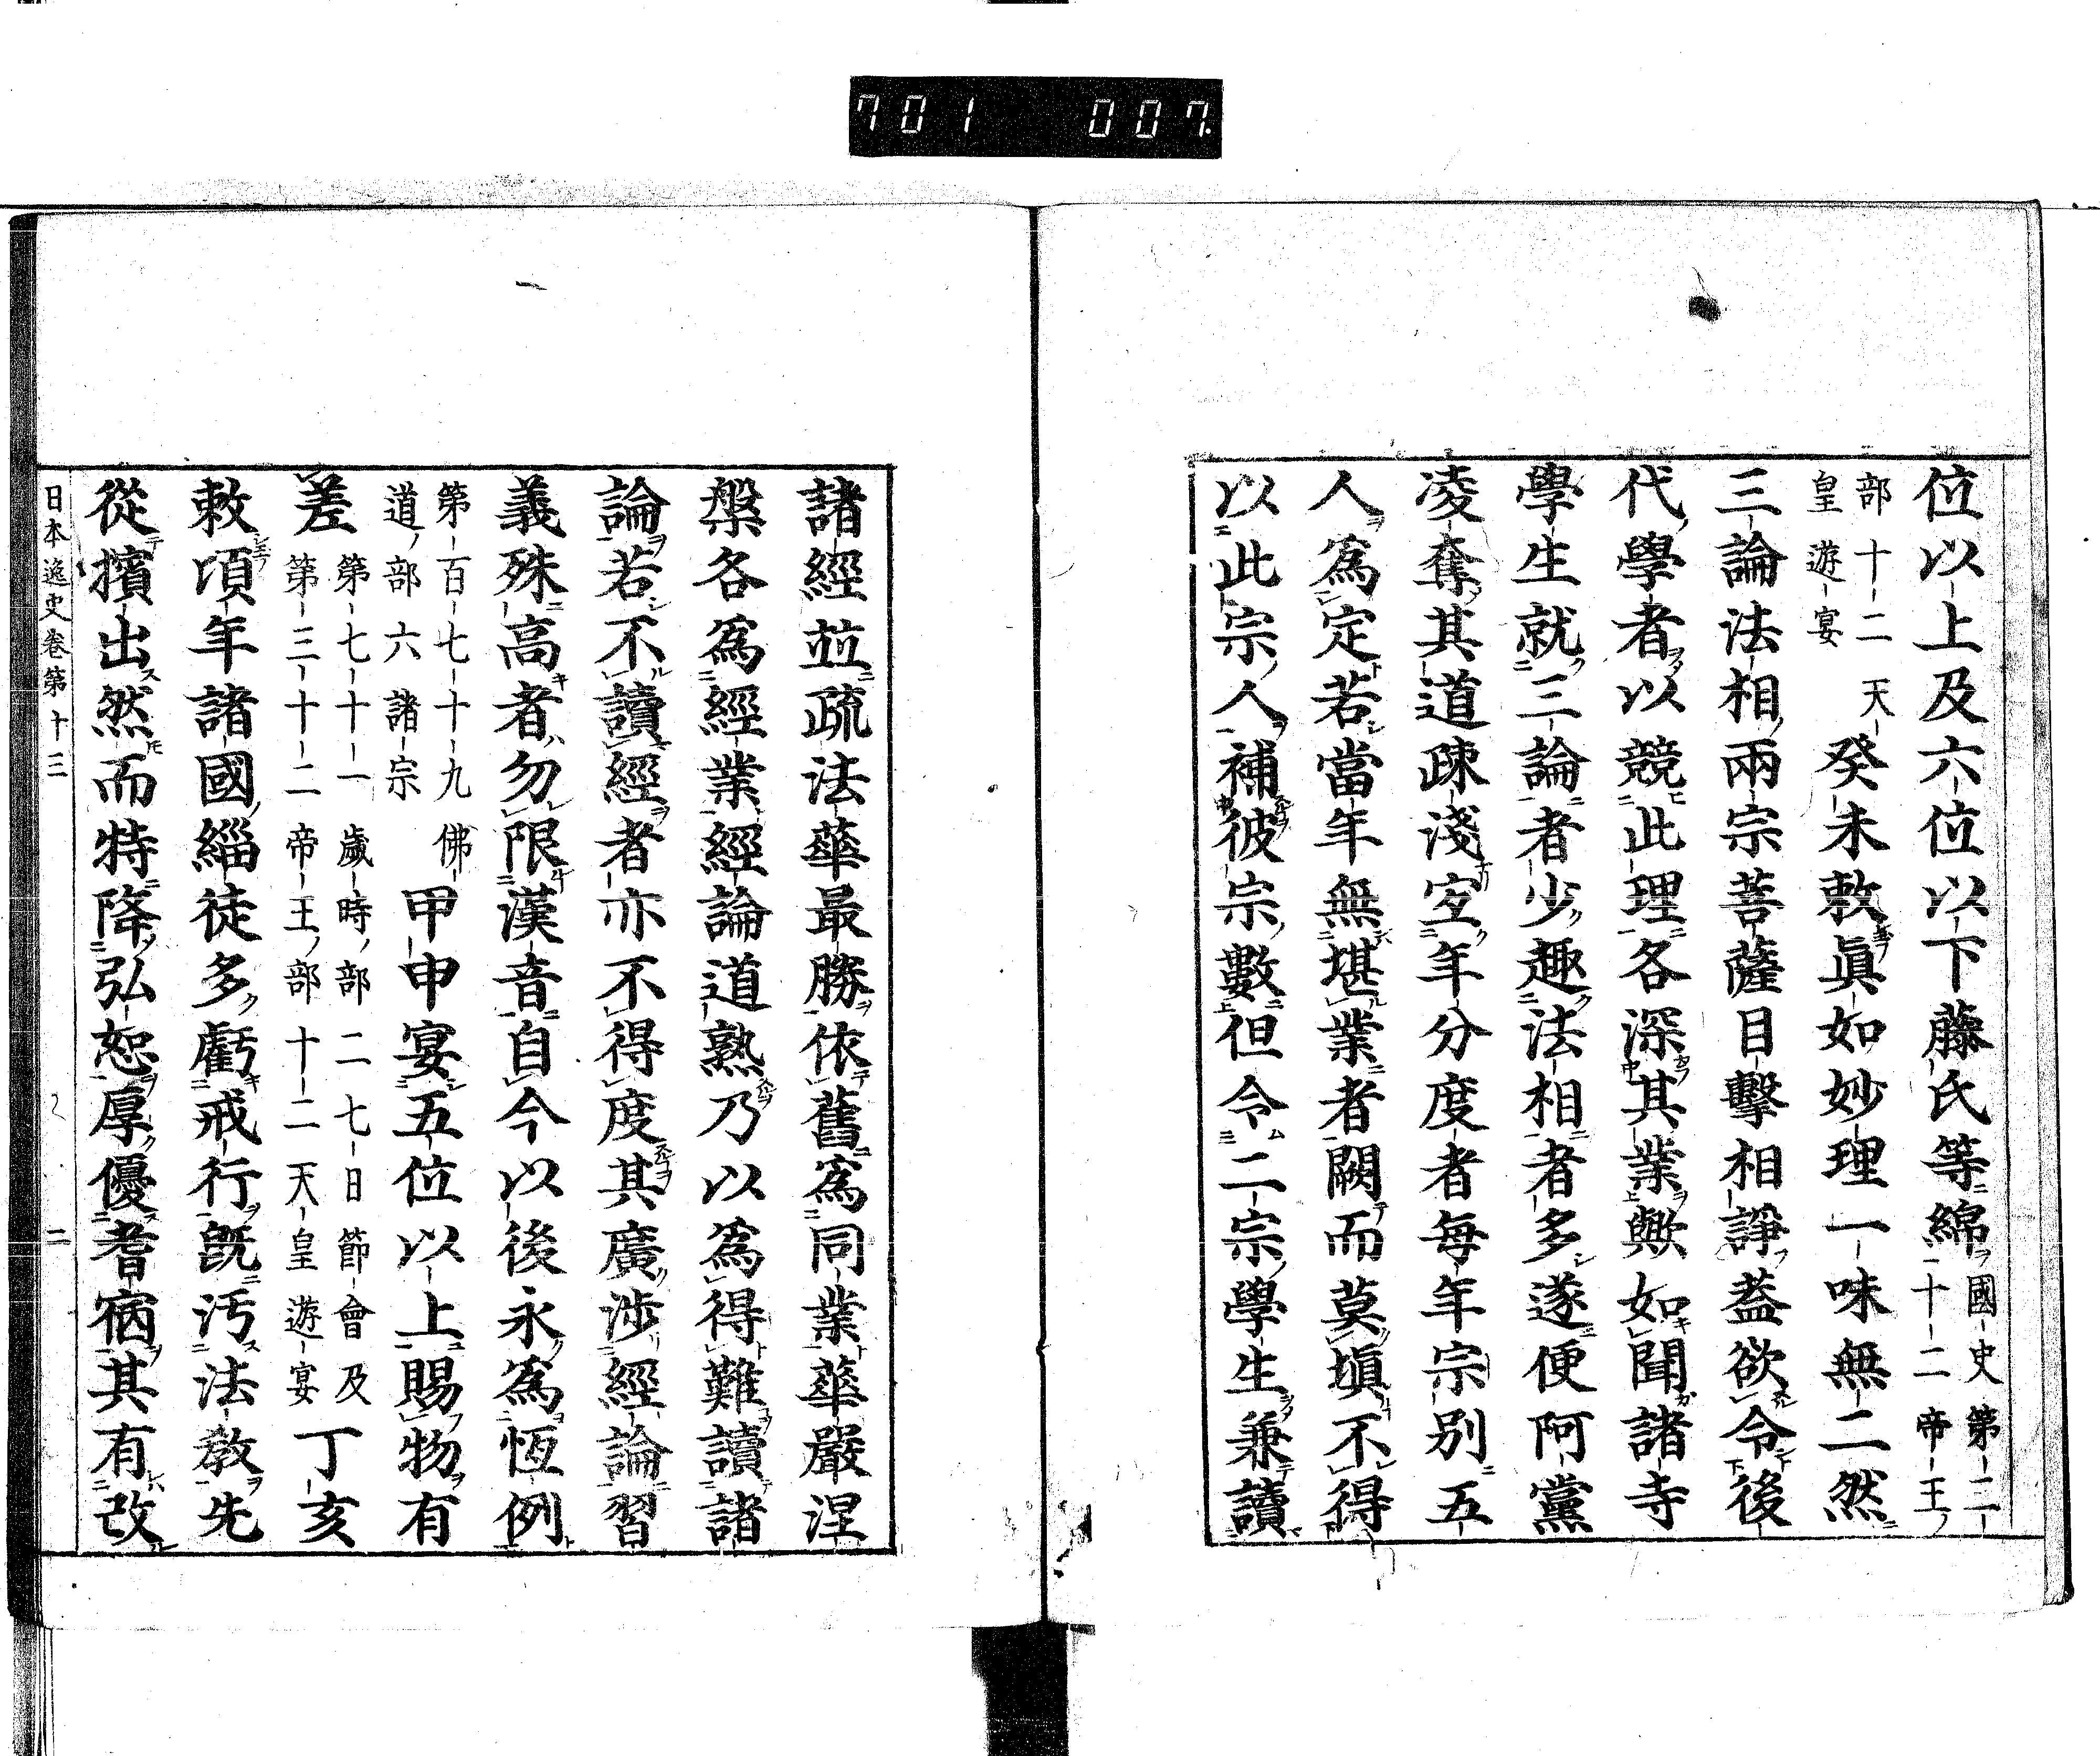 701 007.
位以上及六位以下藤氏等綿國史第三十二帝王
部十二天皇遊宴癸未敕眞如妙理一味無二然
三論法相兩宗菩薩目擊相諍葢欲令後
代學者以競此理各深其業歟如聞諸寺
學生就三論者少趣法相者多遂便阿黨
凌奪其道疎淺宜年分度者每年宗別五
人爲定若當年無堪業者闕而莫塡不得
以此宗人補彼宗數但令二宗學生兼讀
諸經竝疏法華最勝依舊爲同業華嚴涅
槃各爲經業經論道熟乃以爲得難讀諸
論若不讀經者亦不得度其廣涉經論習
義殊高者勿限漢音自今以後永爲恆例
第百七十九佛道部六諸宗甲申宴五位以上賜物有
差第七十一歲時部二七日節會及第三十二帝王部十二天皇遊宴丁亥
敕頃年諸國緇徒多虧戒行旣汚法教先
從擯出然而特降弘恕厚優耆宿其有改
日本逸史卷第十三 二